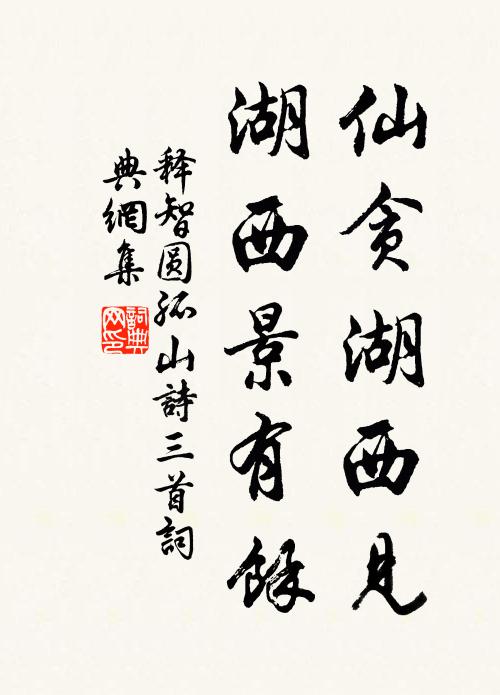 仙贪湖西見
湖西景有餘
释智圆孤山詩三首詞
典網集
詞典
网印